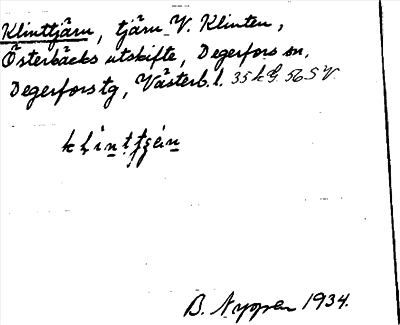 Klinttjärn, tjärn V. Klinten,
Österbäcks utskifte, Degerfors sn,
Degerfors tg, Västerb. l. 35 k G. 56 S V
B. Nyman 1934.